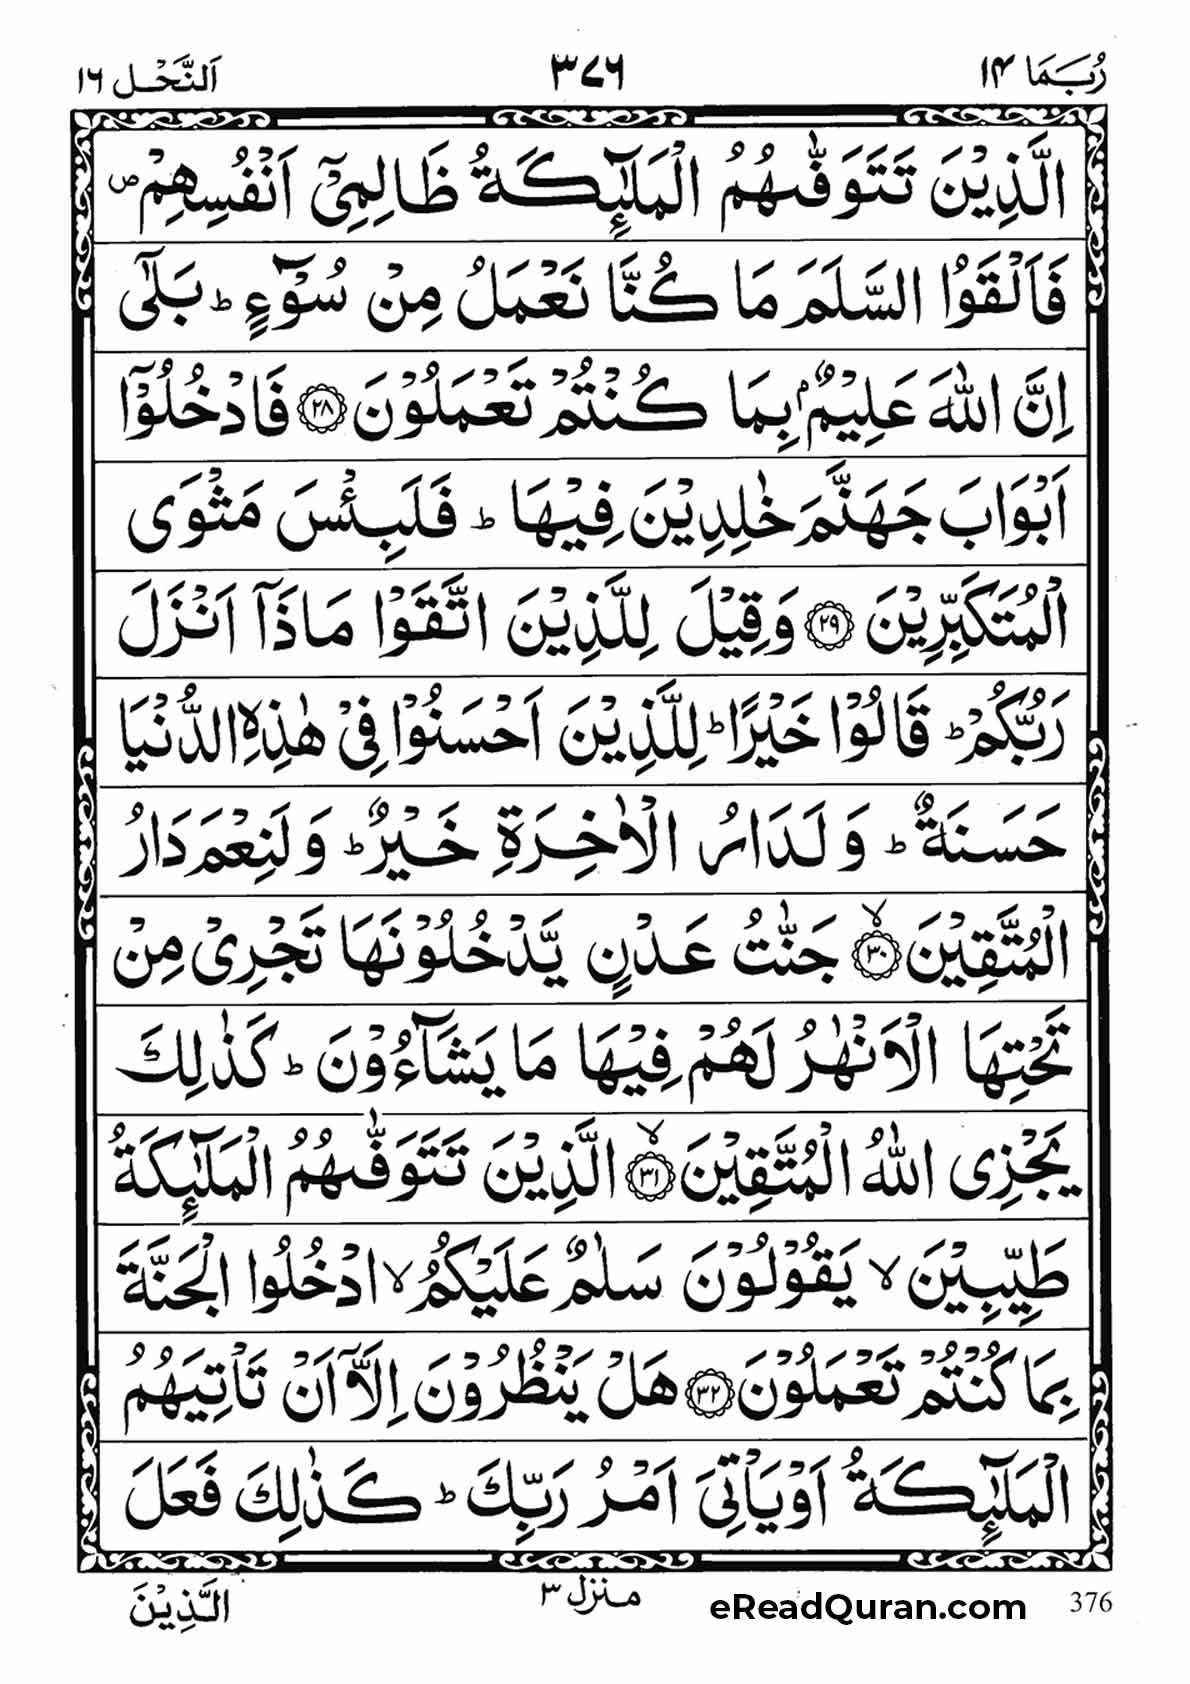 رُبَمَا ١٤
٣٧٦
اَلنَّحْل ١٦
الَّذِيْنَ تَتَوَفّٰىهُمُ الْمَلٰٓئِكَةُ ظَالِمِىْۤ اَنْفُسِهِمْ ۖ
فَاَلْقَوُا السَّلَمَ مَا كُنَّا نَعْمَلُ مِنْ سُوْٓءٍ ؕ بَلٰٓى
اِنَّ اللّٰهَ عَلِيْمٌۢ بِمَا كُنْتُمْ تَعْمَلُوْنَ ﴿۲۸﴾ فَادْخُلُوْۤا
اَبْوَابَ جَهَنَّمَ خٰلِدِيْنَ فِيْهَا ؕ فَلَبِئْسَ مَثْوَى
الْمُتَكَبِّرِيْنَ ﴿۲۹﴾ وَقِيْلَ لِلَّذِيْنَ اتَّقَوْا مَاذَاۤ اَنْزَلَ
رَبُّكُمْ ؕ قَالُوْا خَيْرًا ؕ لِلَّذِيْنَ اَحْسَنُوْا فِىْ هٰذِهِ الدُّنْيَا
حَسَنَةٌ ؕ وَلَدَارُ الْاٰخِرَةِ خَيْرٌ ؕ وَلَنِعْمَ دَارُ
الْمُتَّقِيْنَ ﴿۳۰﴾ۙ جَنّٰتُ عَدْنٍ يَّدْخُلُوْنَهَا تَجْرِىْ مِنْ
تَحْتِهَا الْاَنْهٰرُ لَهُمْ فِيْهَا مَا يَشَآءُوْنَ ؕ كَذٰلِكَ
يَجْزِى اللّٰهُ الْمُتَّقِيْنَ ﴿۳۱﴾ۙ الَّذِيْنَ تَتَوَفّٰىهُمُ الْمَلٰٓئِكَةُ
طَيِّبِيْنَ ۙ يَقُوْلُوْنَ سَلٰمٌ عَلَيْكُمُ ۙ ادْخُلُوا الْجَنَّةَ
بِمَا كُنْتُمْ تَعْمَلُوْنَ ﴿۳۲﴾ هَلْ يَنْظُرُوْنَ اِلَّاۤ اَنْ تَاْتِيَهُمُ
الْمَلٰٓئِكَةُ اَوْ يَاْتِىَ اَمْرُ رَبِّكَ ؕ كَذٰلِكَ فَعَلَ
الَّذِيْنَ
منزل ٣
eReadQuran.com
376